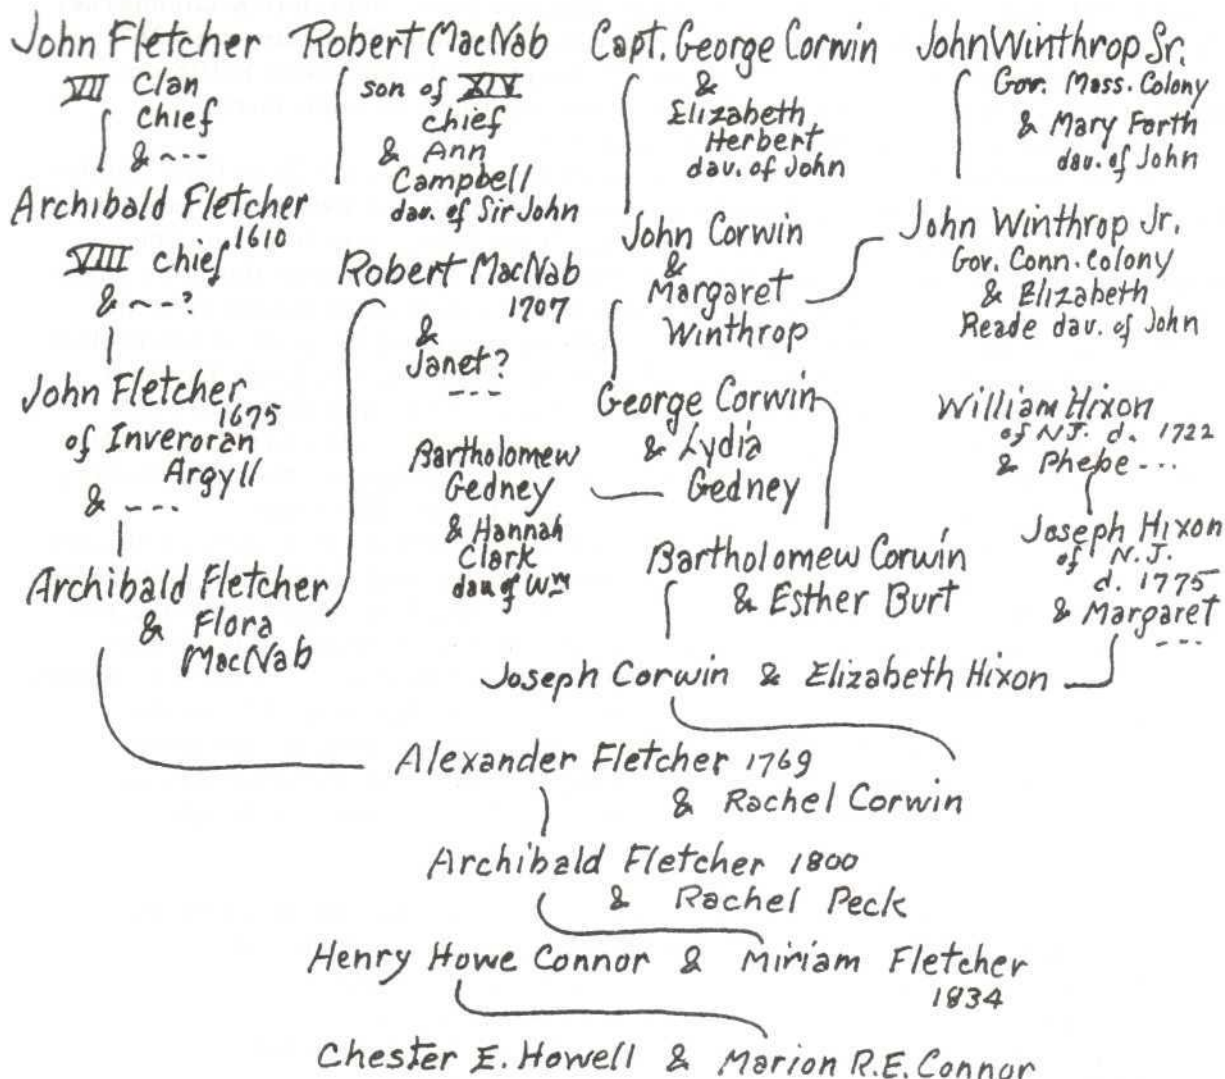 John Fletcher
VII Clan
chief
& ~--
Archibald Fletcher
1610
VIII chief
& ~--?
John Fletcher
1675
of Inveroran
Argyll
& ---
Archibald Fletcher
& Flora
MacNab
Robert MacNab
son of XIV
chief
& Ann
Campbell
dau. of Sir John
Robert MacNab
1707
&
Janet?
---
Capt. George Corwin
&
Elizabeth
Herbert
dau. of John
John Corwin
&
Margaret
Winthrop
George Corwin
& Lydia
Gedney
Bartholomew
Gedney
& Hannah
Clark
dau of Wm
Bartholomew Corwin
& Esther Burt
John Winthrop Sr.
Gov. Mass. Colony
& Mary Forth
dau. of John
John Winthrop Jr.
Gov. Conn. Colony
& Elizabeth
Reade dau. of John
William Hixon
of N.J. d. 1722
& Phebe ---
Joseph Hixon
of N.J.
d. 1775
& Margaret
---
Joseph Corwin & Elizabeth Hixon
Alexander Fletcher 1769
& Rachel Corwin
Archibald Fletcher 1800
& Rachel Peck
Henry Howe Connor & Miriam Fletcher
1834
Chester E. Howell & Marion R.E. Connor